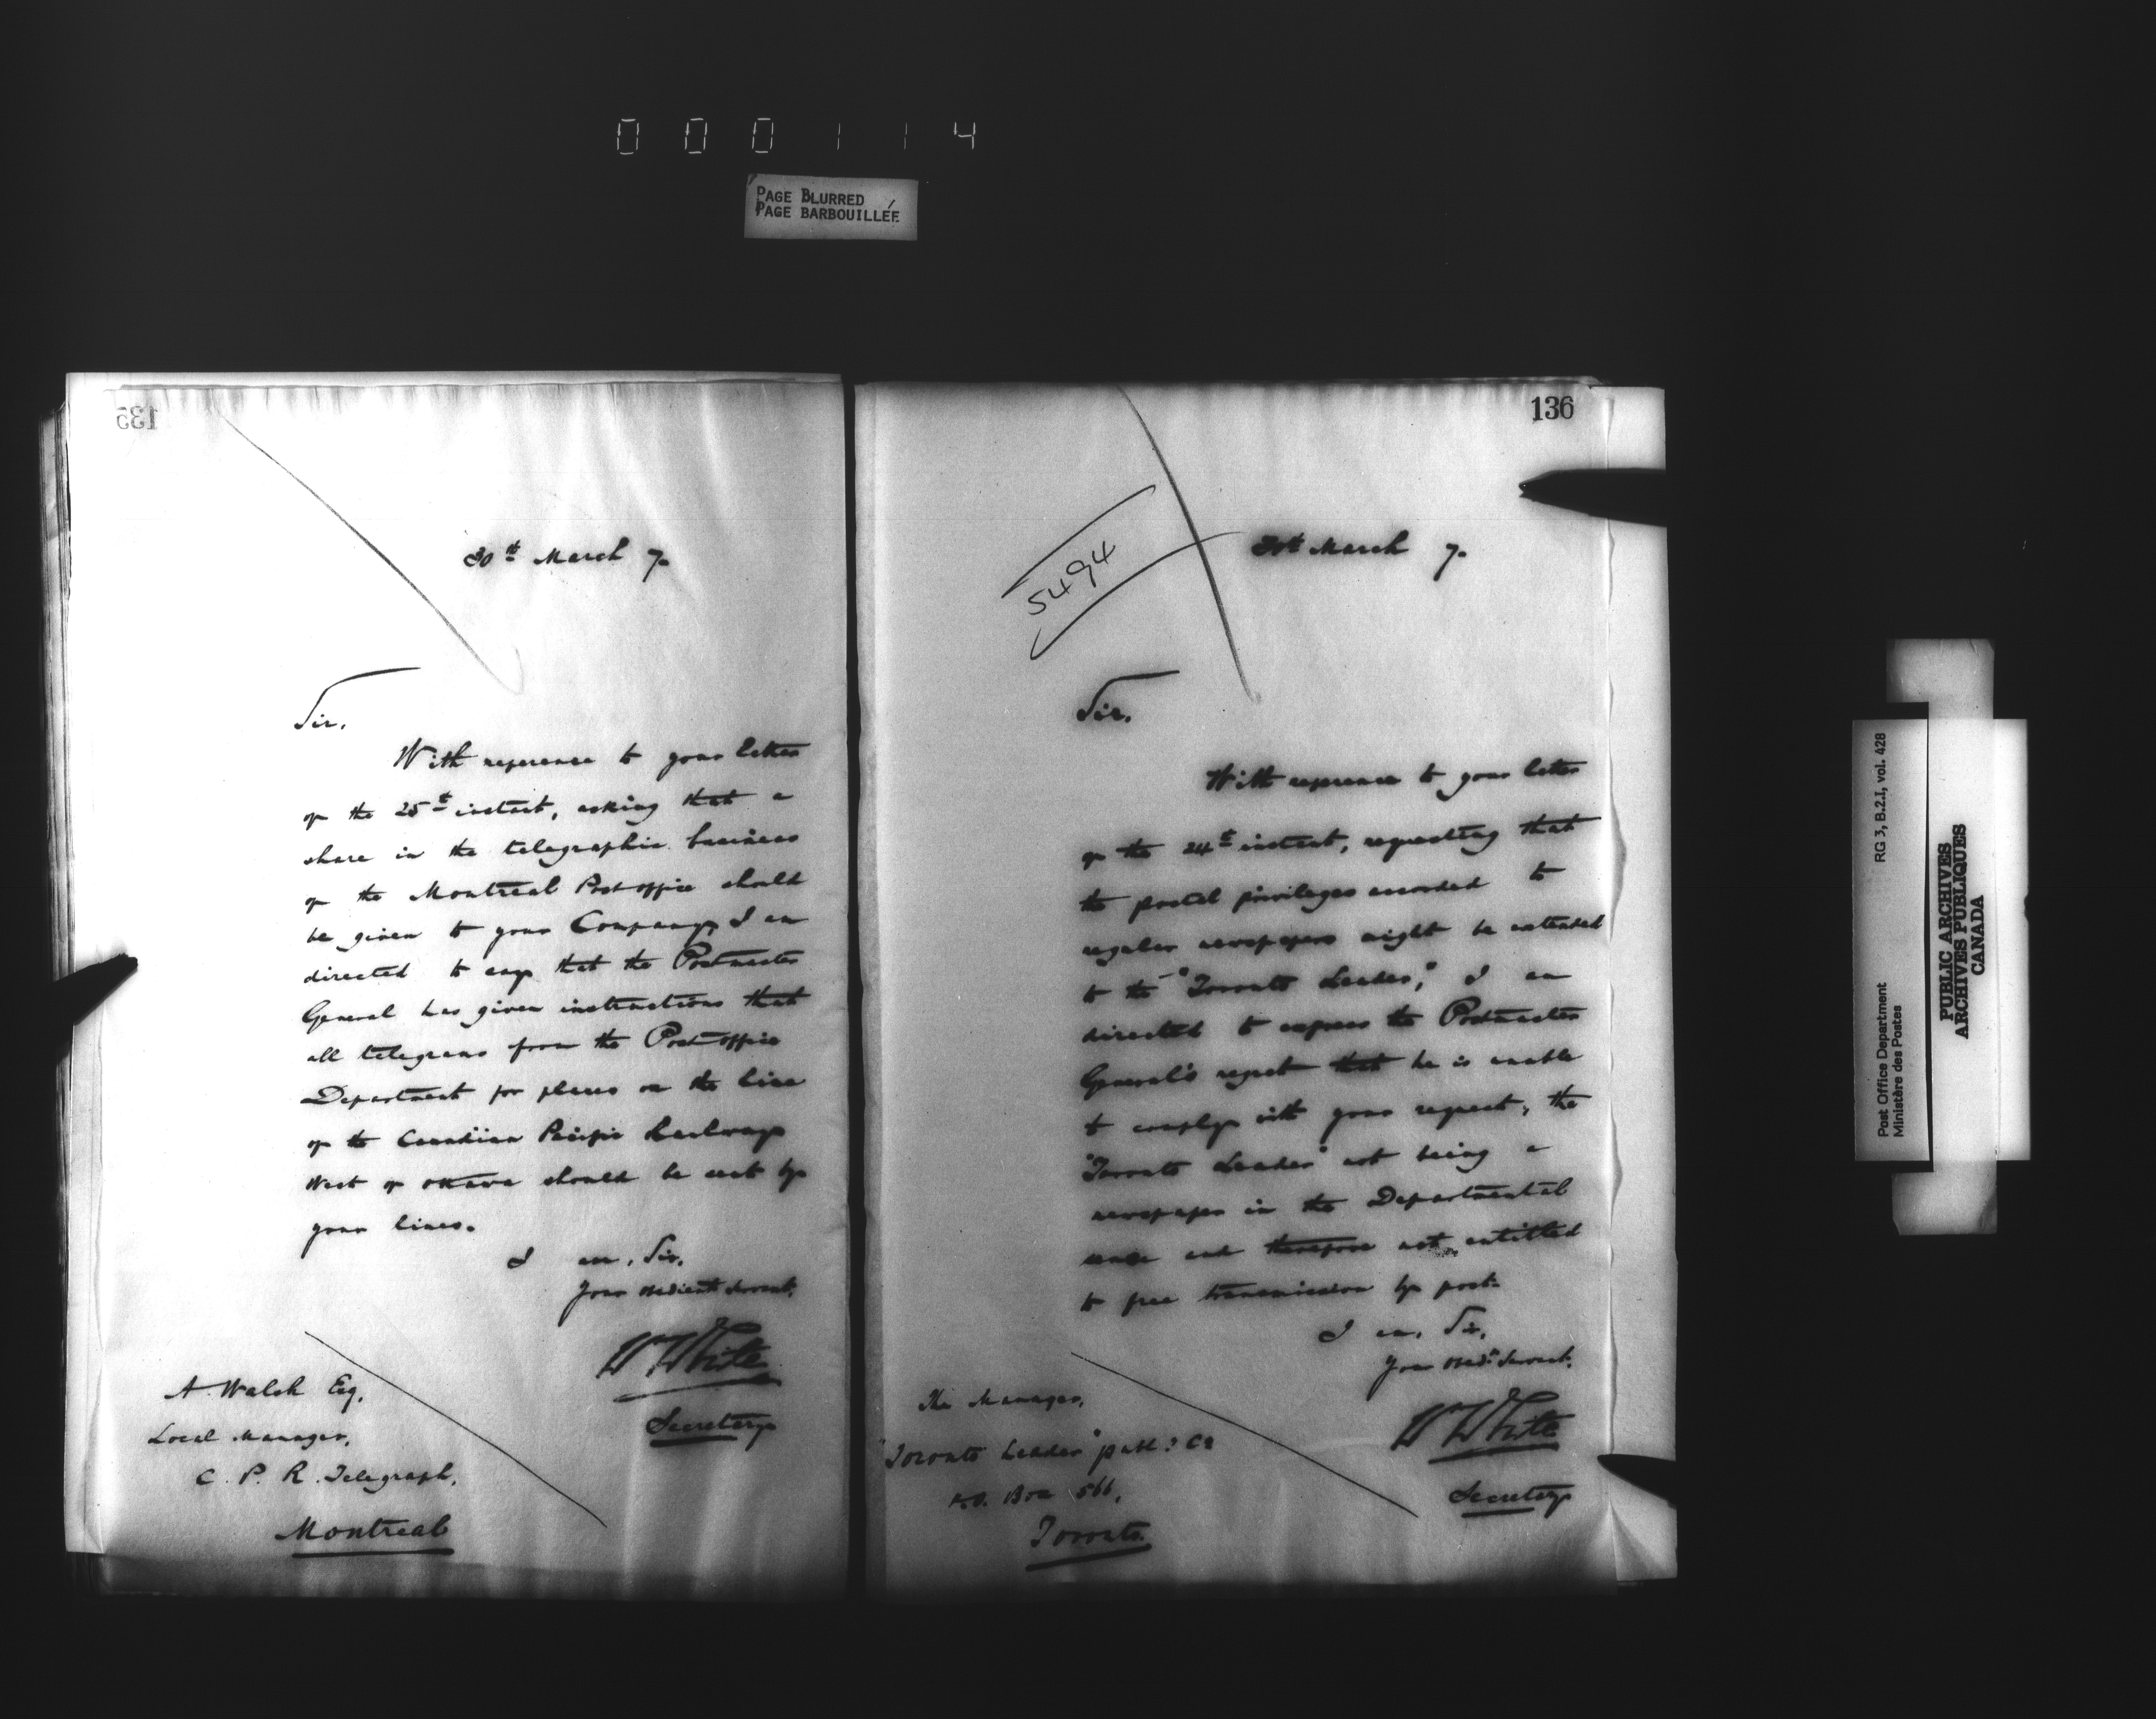 000114
PAGE BLURRED
PAGE BARBOUILLÉE
135
30th March 7.
Sir,
With reference to your letter
of the 25th instant, asking that a
share in the telegraphic business
of the Montreal Post office should
be given to your Company, I am
directed to say that the Postmaster
General has given instructions that
all telegrams from the Post office
Department for places on the line
of the Canadian Pacific Railway
West of Ottawa should be sent by
your lines.
I am, Sir,
Your obedient Servant,
W White
Secretary
A. Walsh Esq,
Local Manager,
C. P. R. Telegraph,
Montreal
136
5494
30th March 7.
Sir,
With reference to your letter
of the 24th instant, requesting that
the postal privileges accorded to
regular newspapers might be extended
to the "Toronto Leader," I am
directed to express the Postmaster
General's regret that he is unable
to comply with your request, the
"Toronto Leader" not being a
newspaper in the Departmental
sense and therefore not entitled
to free transmission by post.
I am, Sir,
Your Obedt Servant,
W White
Secretary
The Manager,
"Toronto Leader" publ: Co
P.O. Box 566,
Toronto.
Post Office Department
Ministère des Postes
RG 3, B.2.I, vol. 428
PUBLIC ARCHIVES
ARCHIVES PUBLIQUES
CANADA